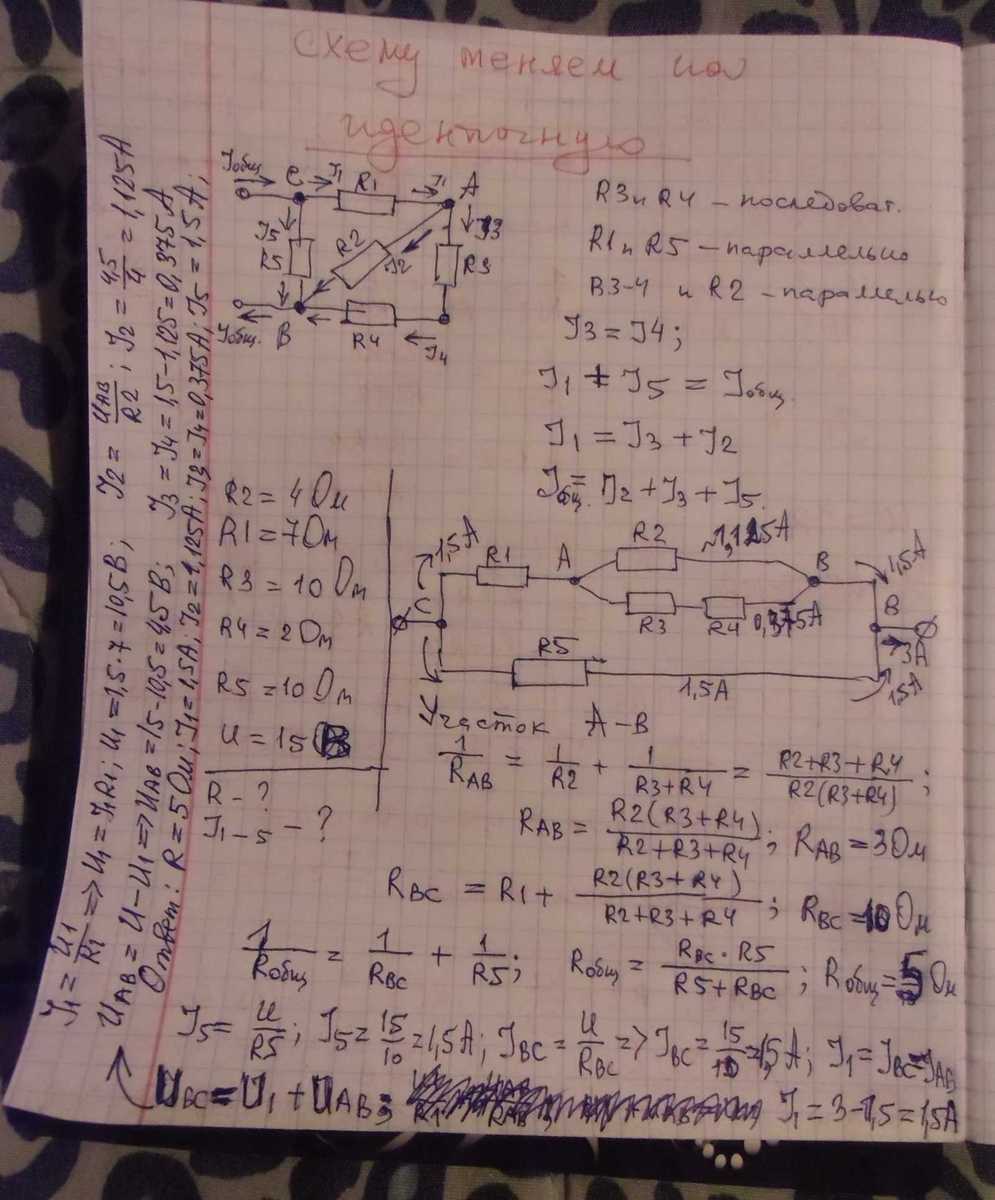 схему меняем на
идентичную
Iобщ
C
I1
R1
I1
A
I5
R5
R2
I2
I3
R3
Iобщ.
B
R4
I4
R3 и R4 – последоват.
R1 и R5 – параллельно
R3-4 и R2 – параллельно
I3 = I4;
I1 + I5 = Iобщ.
I1 = I3 + I2
Iобщ. = I2 + I3 + I5.
R2 = 4 Ом
R1 = 7 Ом
R3 = 10 Ом
R4 = 2 Ом
R5 = 10 Ом
U = 15 В
R – ?
I1–5 – ?
1,5A
R1
A
R2
1,125A
B
1,5A
C
R3
R4
0,375A
B
3A
R5
1,5A
1,5A
Участок A–B
1/RAB = 1/R2 + 1/(R3+R4) = (R2+R3+R4)/(R2(R3+R4));
RAB = R2(R3+R4)/(R2+R3+R4); RAB = 3 Ом
RBC = R1 + R2(R3+R4)/(R2+R3+R4); RBC = 10 Ом
1/Rобщ = 1/RBC + 1/R5; Rобщ = RBC·R5/(R5+RBC); Rобщ = 5 Ом
I5 = U/R5; I5 = 15/10 = 1,5A; IBC = U/RBC => IBC = 15/10 = 1,5A; I1 = IBC = IAB
UBC = U1 + UAB;
I1 = 3 – 1,5 = 1,5A
I1 = U1/R1 => U1 = I1R1; U1 = 1,5·7 = 10,5В; I2 = UAB/R2; I2 = 4,5/4 = 1,125A
UAB = U – U1 => UAB = 15 – 10,5 = 4,5В; I3 = I4 = 1,5 – 1,125 = 0,375A
Ответ: R = 5 Ом; I1 = 1,5A; I2 = 1,125A; I3 = I4 = 0,375A; I5 = 1,5A;